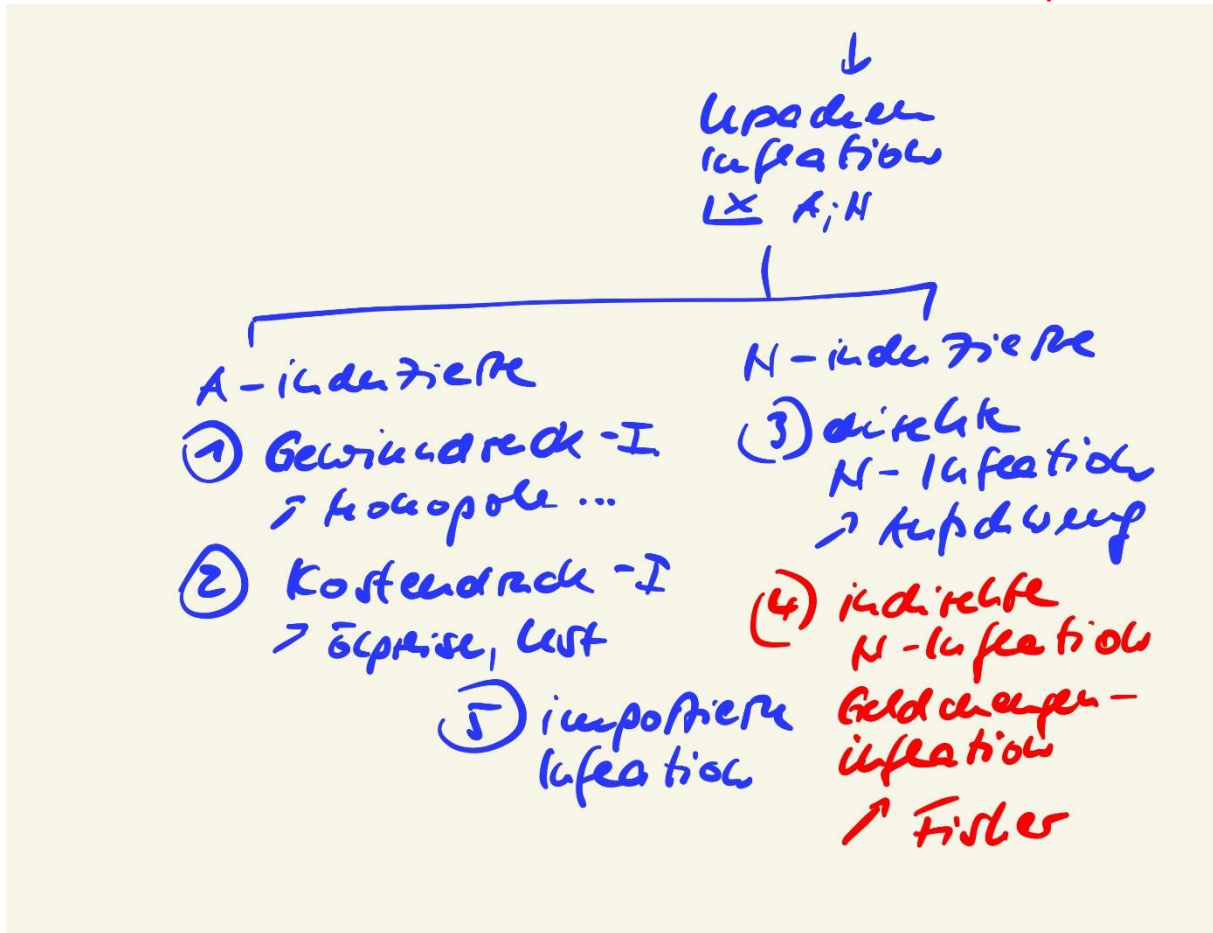 Ursachen
Inflation
A; N
A-induzierte
① Gewinndruck-I
↗ Monopole ...
② Kostendruck-I
↗ Ölpreise, USt
N-induzierte
③ direkte
N-Inflation
↗ Aufschwung
④ indirekte
N-Inflation
Geldmengen-
inflation
↗ Fisher
⑤ importierte
Inflation